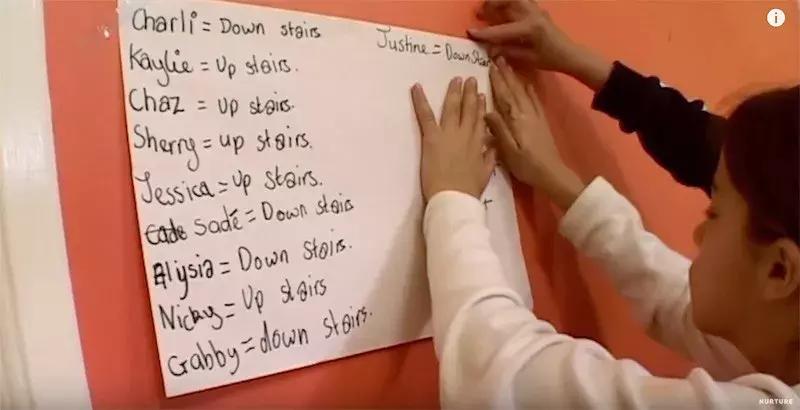 Charli = Down stairs
Kaylie = Up stairs.
Chaz = Up stairs.
Sherry = up stairs.
Jessica = Up stairs.
Sadé = Down stairs
Alysia = Down stairs.
Nicky = Up stairs
Gabby = down stairs.
Justine = Down Stair
NURTURE